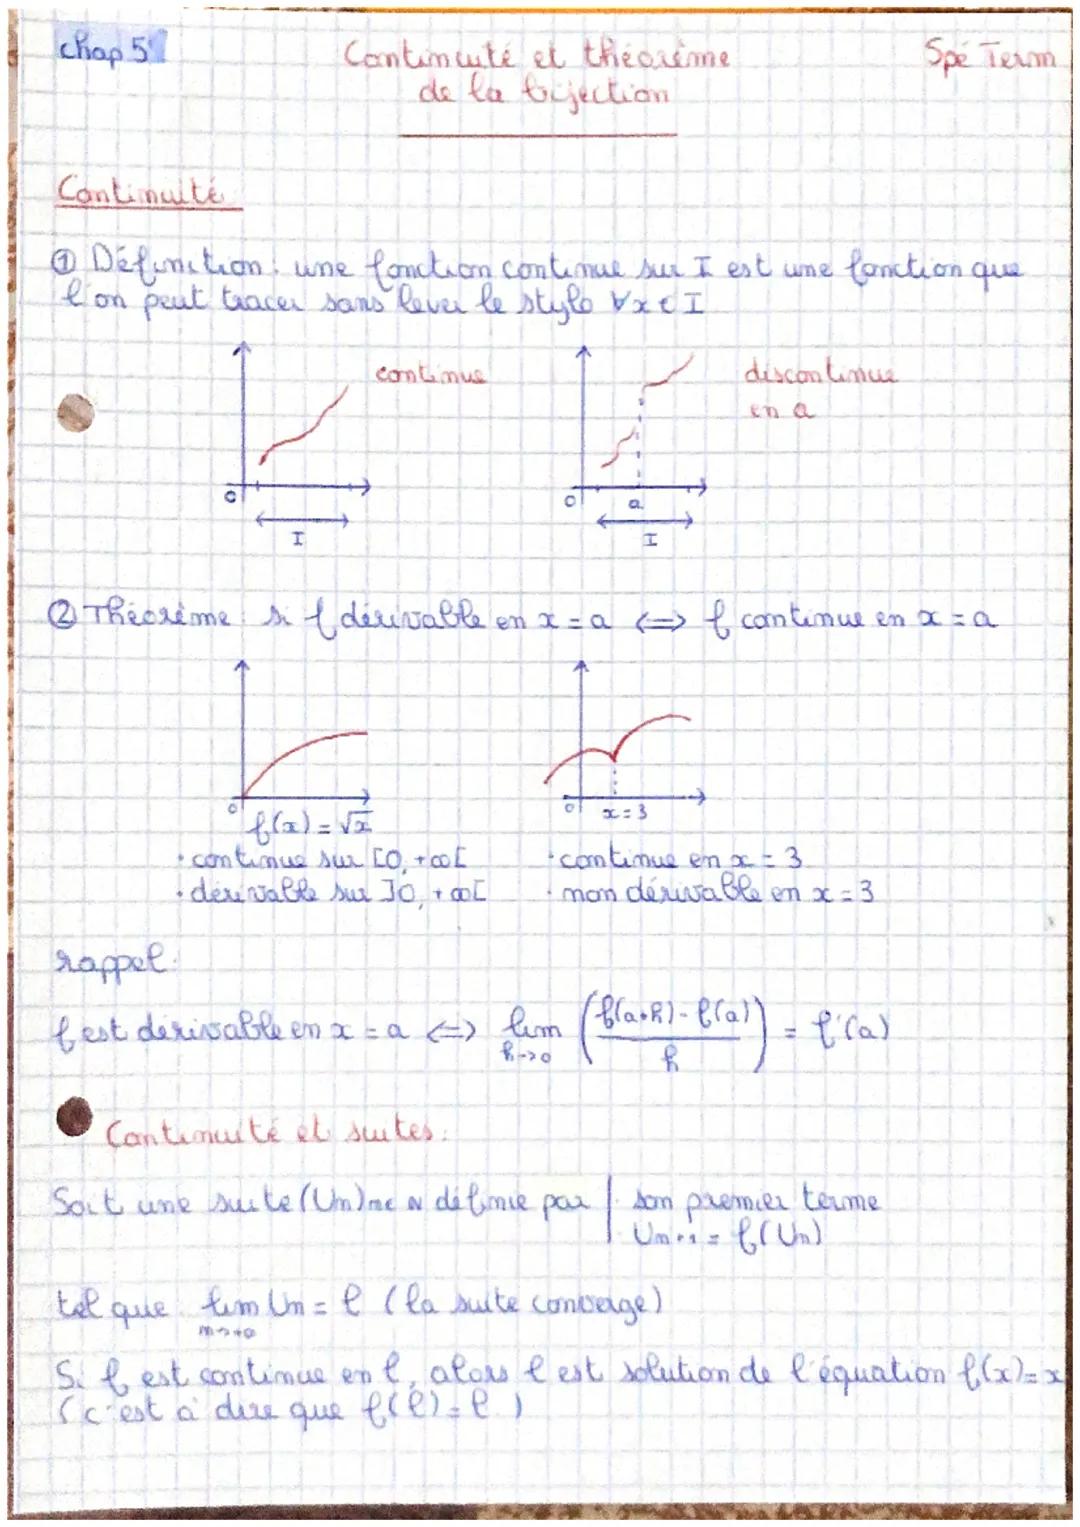 chap 5
Continuité et théorème
de la bijection
Spé Term
Continuité
① Définition : une fonction continue sur I est une fonction que
l'on peut tracer sans lever le stylo ∀x ∈ I
continue
discontinue
en a
0
I
0
a
I
② Théorème : si f dérivable en x = a <=> f continue en x = a
0
f(x) = √x
0
x = 3
• continue sur [0, +∞[
• dérivable sur ]0, +∞[
• continue en x = 3
• non dérivable en x = 3
rappel :
f est dérivable en x = a <=> lim h->0 ((f(a+h) - f(a))/h) = f'(a)
Continuité et suites :
Soit une suite (Un)n∈ℕ définie par | son premier terme
Un+1 = f(Un)
tel que : lim Un = l (la suite converge)
n->+∞
Si f est continue en l, alors l est solution de l'équation f(x) = x
(c'est à dire que f(l) = l )